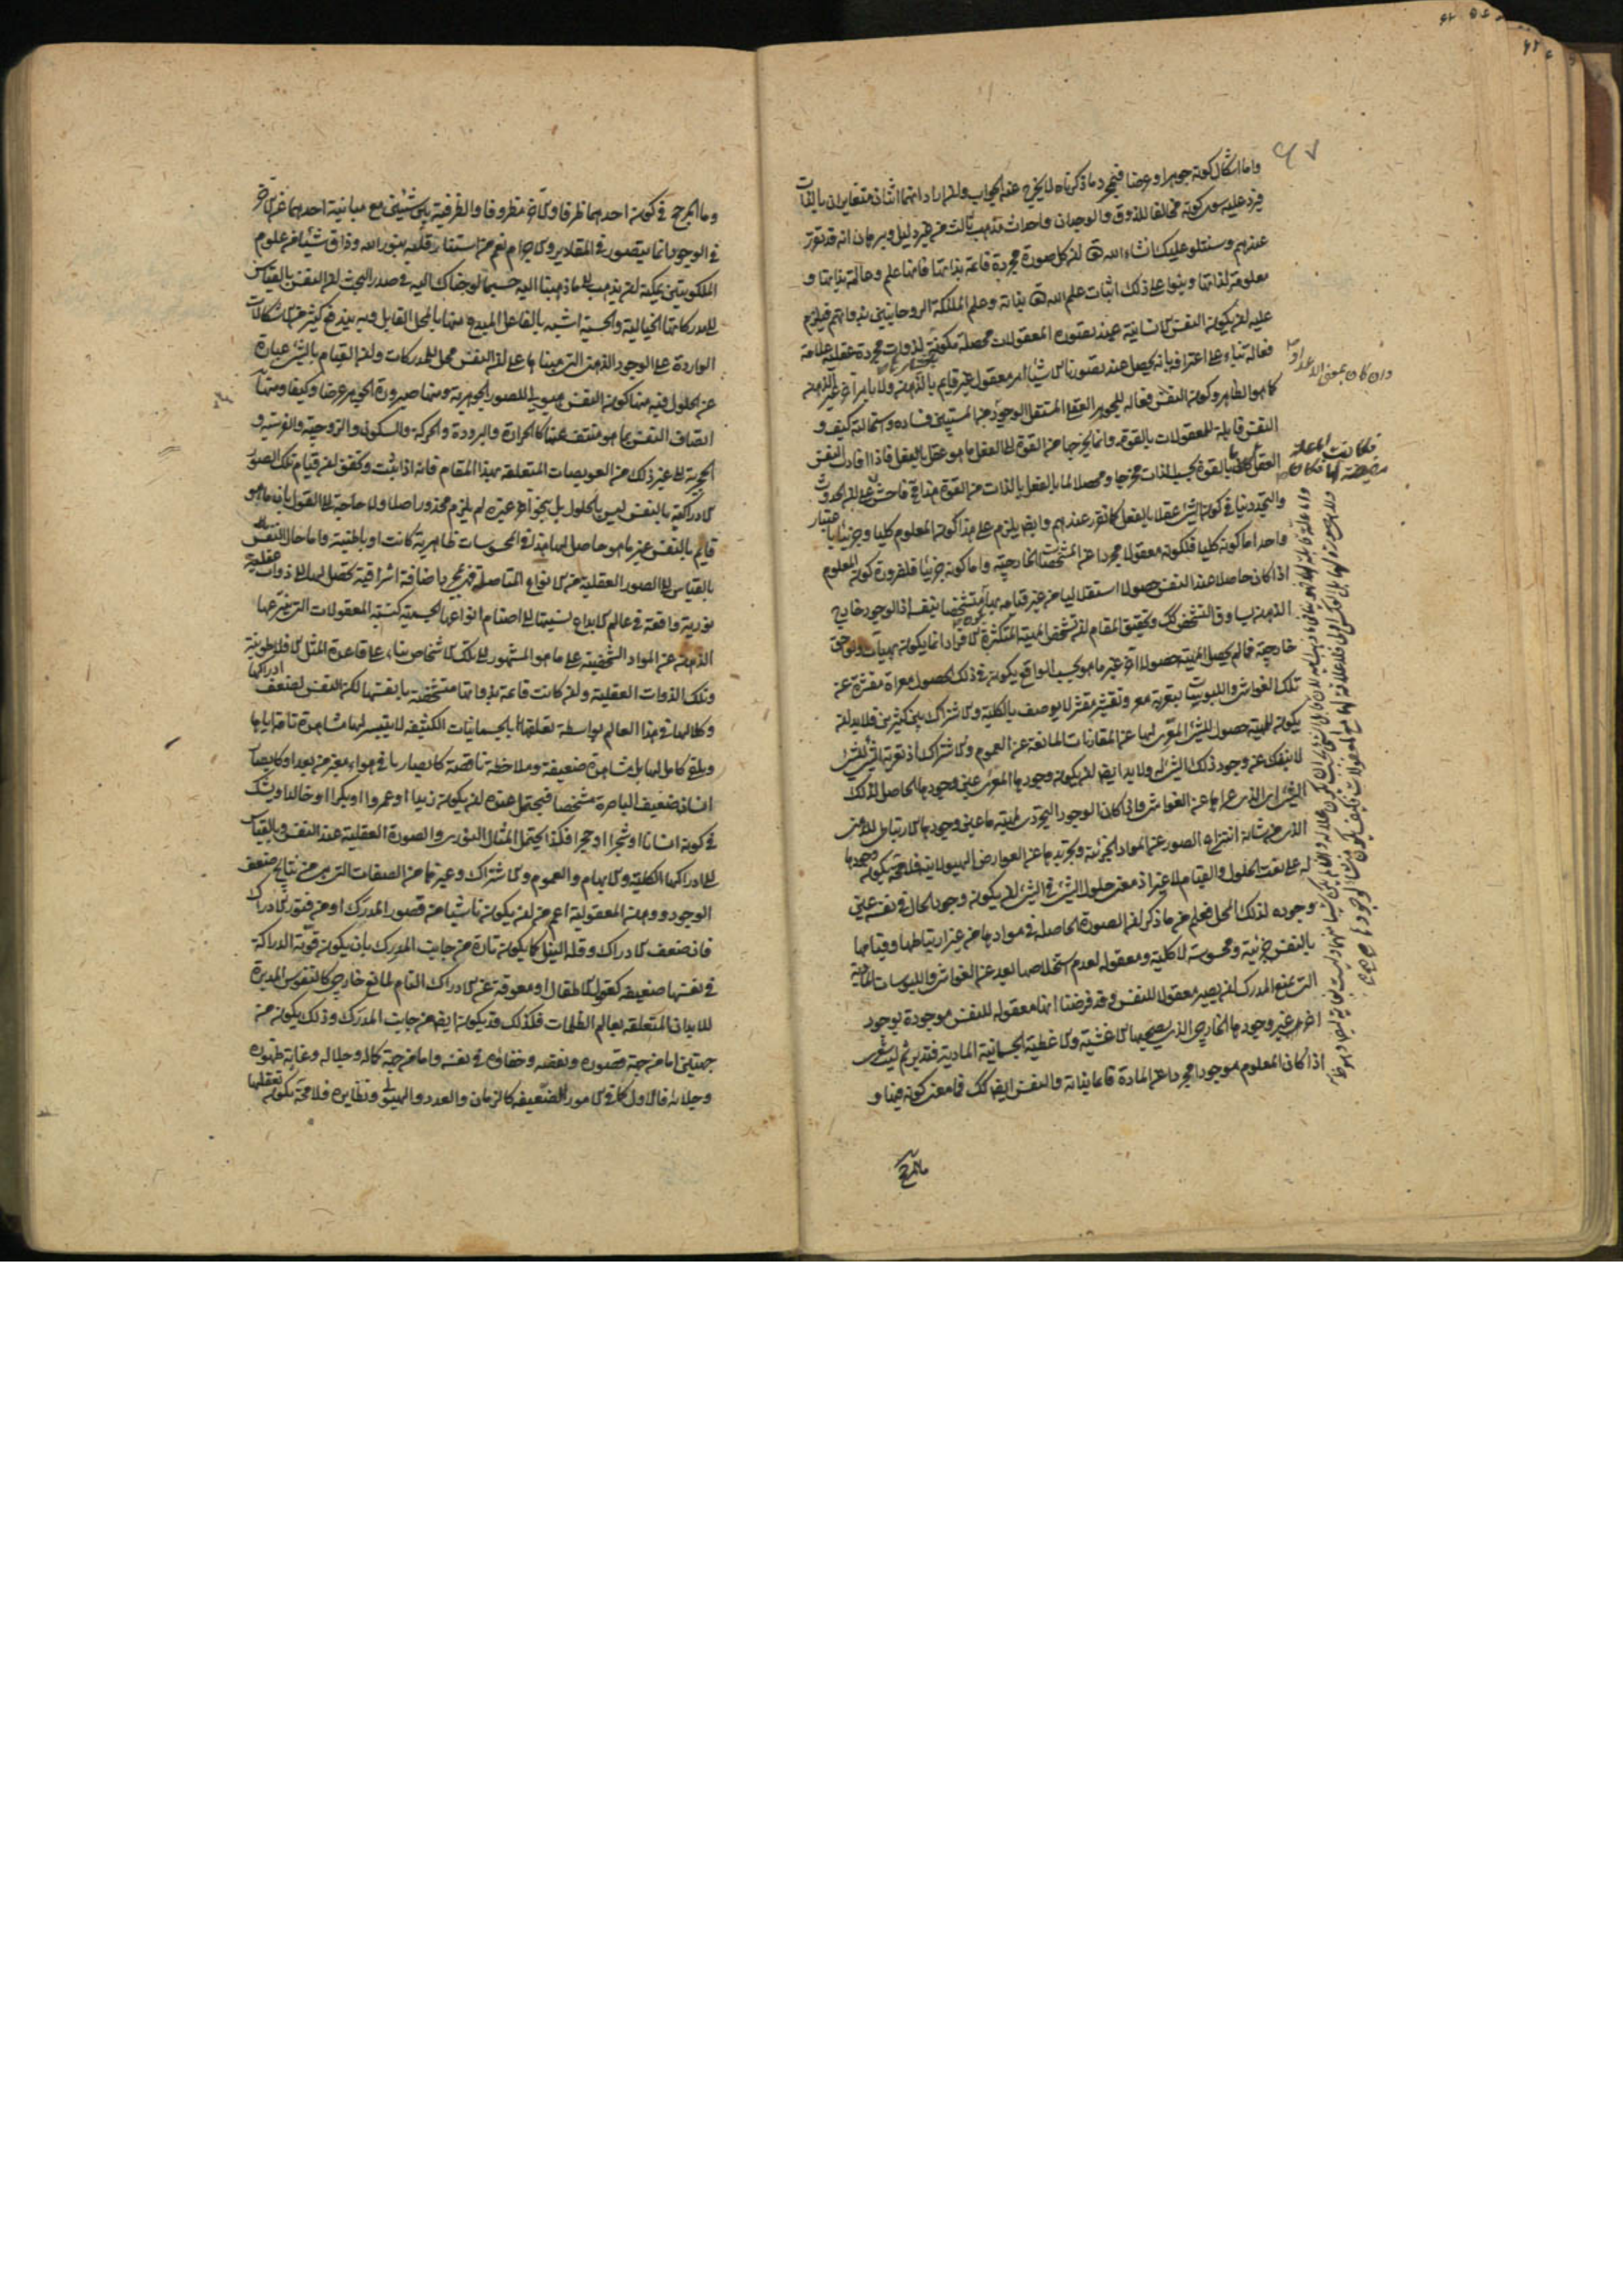 واما اشكال كونه جوهرا وعرضا فبمجرد ما ذكرتاه لا يخرج عنه الجواب ولئن اراد انهما اثنان متغايران بالذات
فيرد عليه سوى كونه مخالفا للذوق والوجدان واحداث مذهب ثالث من غير دليل وبرهان انه قد تقرر
عندهم وسنتلو عليك انشاء الله تع ان كل صورة مجردة قائمة بذاتها فانها علم وعالمة بذاتها و
معلومة لذاتها وبنوا على ذلك اثبات علم الله تع بذاته وعلم الملئكة الروحانيين بذواتهم فيلزم
عليه ان يكون النفس الانسانية عند تصوره المعقولات محصلة مكونة لذوات مجردة عقلية علامة
فعالة بناء على اعترافه بانه يحصل عند تصورنا الاشياء امر معقول غير قايم بالذهن ولا بامر اخر غير الذهن
كما هو الظاهر وكون النفس فعاله للجوهر العقلى المستقل الوجود من المستبين فساده واستحالته كيف و
النفس قابلة للمعقولات بالقوة وانما يخرجها من القوة الى العقل ما هو عقل بالفعل فاذا افادت النفس
العقل كان ما بالقوة بحسب الذات مخرجا ومحصلا لما بالفعل بالذات من القوة هذا مع فاحش على ان الحدوث
والتجدد ينافى كون الشئ عقلا بالفعل كما تقرر عندهم وايض يلزم على هذا كون المعلوم كليا وجزئيا باعتبار
واحد اما كونه كليا فلكونه معقولا مجردا عن المشخصات الخارجية واما كونه جزئيا فلضرورة كون المعلوم
اذا كان حاصلا عند النفس حصولا استقلاليا من غير قيامه بها متشخصا بنفسه اذ الوجود خارج
الذهن يساوق التشخص كك وتحقيق المقام ان تشخص المهية المتكثرة الافراد انما يكون بهيآت ولواحق
خارجية فما لم يحصل المهية حصولا آخر غير ما هو بحسب الواقع يكون فى ذلك الحصول معراة مقشرة عن
تلك الغواشى واللبوسات بتعرية معر وتقشير مقشر لا يوصف بالكلية والاشتراك بين كثيرين فلا بد ان
يكون للمهية حصول للشئ المعرى لها عن المقارنات المانعة عن العموم والاشتراك اذ تعرية الشئ للشئ
لا ينفك عن وجود ذلك الشئ له ولا بد ايض ان يكون وجودها المعرى عين وجودها الحاصل لذلك
الشئ الذى عراها عن الغواشى واذا كان الوجود التجردى لمهية ما عين وجودها الارتباطى للذهن
الذى من شانه انتزاع الصور عن المواد الجزئية وتجريدها عن العوارض الهيولانية فلا محة يكون وجودها
له على نعت الحلول والقيام لا غير اذ معنى حلول الشئ فى الشئ ان يكون وجود الحال فى نفسه عين
وجوده لذلك المحل فعلم من ما ذكر ان الصورة الحاصله فى موادها من غير ارتباطها وقيامها
بالنفس جزئية ومحسوسة لا كلية ومعقوله لعدم استخلاصها بعد عن الغواشى واللبوسات المادية
التى تمنع المدرك ان يصير معقولا للنفس وقد فرضنا انها معقوله للنفس موجودة بوجود
اخر غير وجودها الخارجى الذى يصحبها الاغشية والاغطية الجسمانية المادية فتدبر ثم ليت شعرى
اذا كان المعلوم موجودا مجردا عن المادة قائما بذاته والنفس ايض كك فما معنى كونه فيها و
ما المرجح
وان كان بمعنى الاعداد
فكانت الماهية
مفيضة لها فكان
وما المرجح فى كون احدهما ظرفا والاخر مظروفا والظرفية بين شيئين مع مباينة احدهما عن الاخر
فى الوجود انما يتصور فى المقادير والاجرام نعم من استنار قلبه بنور الله وذاق شيئا من علوم
الملكوتيين يمكنه ان يذهب الى ما ذهبنا اليه حسبما لوحناك اليه فى صدر البحث ان النفس بالقياس
الى مدركاتها الخيالية والحسية اشبه بالفاعل المبدع منها بالمحل القابل وبه يندفع كثير من الاشكالات
الواردة على الوجود الذهنى التى مبناها على ان النفس محل للمدركات وان القيام بالشئ عبارة
عن الحلول فيه منها كون النفس هيولى للصور الجوهرية ومنها صيرورة الجوهر عرضا وكيفا ومنها
اتصاف النفس بما هو منتف عنها كالحرارة والبرودة والحركة والسكون والزوجية والفرسية و
الحجرية الى غير ذلك من العويصات المتعلقه بهذا المقام فانه اذا ثبت وتحقق ان قيام تلك الصور
الادراكية بالنفس ليس بالحلول بل بنحو آخر غيره لم يلزم محذور اصلا ولا حاجة الى القول بان ما هو
قايم بالنفس غير ما هو حاصل لها هذا فى المحسوسات ظاهرية كانت او باطنية واما حال النفس
بالقياس الى الصور العقلية من الانواع المتاصلة فبمجرد اضافة اشراقية تحصل لها الى ذوات عقلية
نورية واقعة فى عالم الابداع نسبتها الى اصنام انواعها الجسمية كنسبة المعقولات التى ينتزعها
الذهن عن المواد الشخصية على ما هو المشهور الى تلك الاشخاص بناء على قاعدة المثل الافلاطونية
وتلك الذوات العقلية وان كانت قائمة بذواتها متشخصة بانفسها لكن النفس لضعف ادراكها
وكلالها فى هذا العالم بواسطه تعلقها بالجسمانيات الكثيفه لا يتيسر لها مشاهدة تامة اياها
وتلقى كامل لها بل مشاهدة ضعيفة وملاحظة ناقصة كابصارنا فى هواء مغبر من بعد او كابصار
انسان ضعيف الباصرة متشخصا فيحتمل عنده ان يكون زيدا او عمروا او بكرا او خالدا ويشك
فى كونه انسانا او شجرا او حجرا فكذا يحتمل المثال النورى والصورة العقلية عند النفس وبالقياس
الى ادراكها الكلية والابهام والعموم والاشتراك وغيرها من الصفات التى هى من نتايج ضعف
الوجود ووهن المعقولية اعم من ان يكون ناشيا من قصور المدرك او من فتور الادراك
فان ضعف الادراك وقلة النيل كما يكون تارة من جانب المدرك بان يكون قوته الدراكة
فى نفسها ضعيفه كعقول الاطفال او معوقة عن الادراك التام لمانع خارجى كالنفوس المدبرة
للابدان المتعلقه بعالم الظلمات فكذلك قد يكون ايض من جانب المدرك وذلك يكون من
جهتين اما من جهة قصوره ونقصه وخفائه فى نفسه واما من جهة كماله وجلاله وغاية ظهوره
وجلائه فالاول كما فى الامور الضعيفه كالزمان والعدد والهيولى ونظايره فلا محة يكون تعقلها